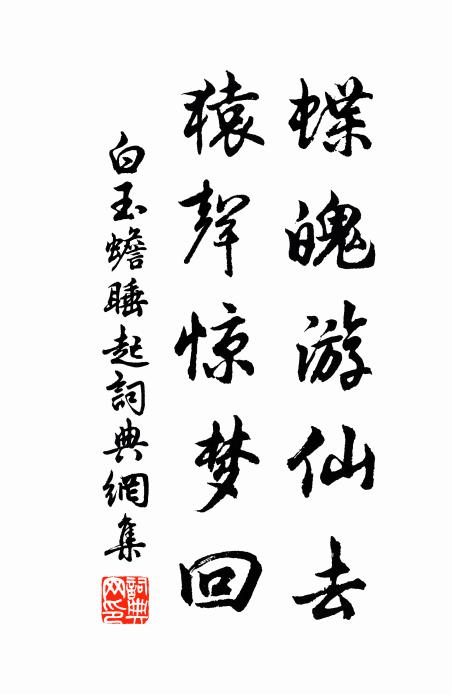 蝶魄游仙去
猿聲惊梦回
白玉蟾睡起詞典網集
詞典網印